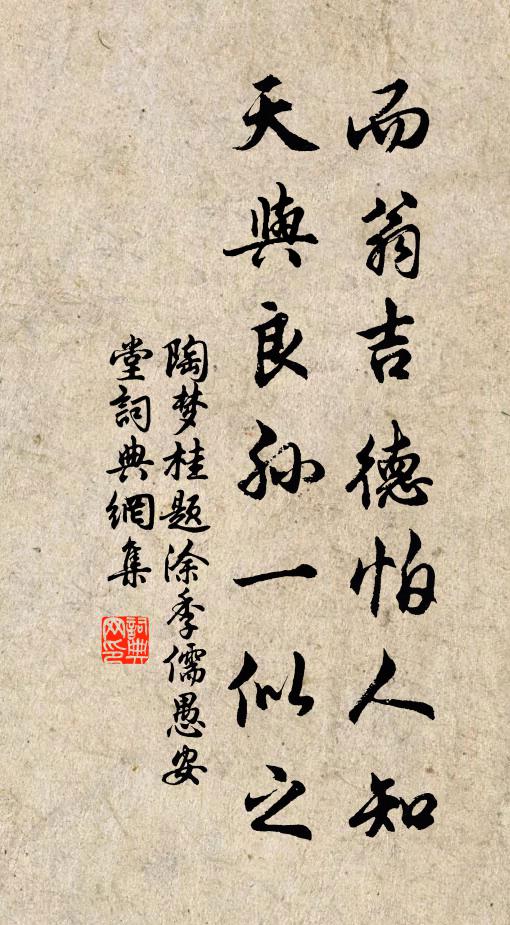 而翁吉德怕人知
天與良孙一似之
陶梦桂题涂季儒愚安
堂詞典網集
詞典网印